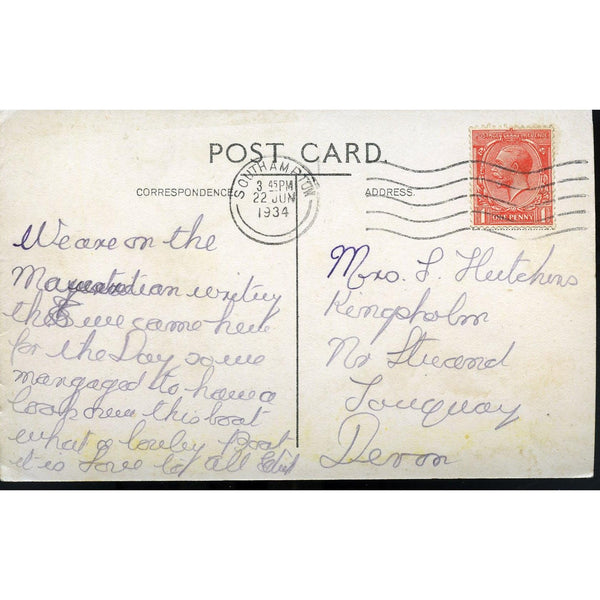 POST CARD.
CORRESPONDENCE
ADDRESS.
SOUTHAMPTON
3 45 PM
22 JUN
1934
POSTAGE REVENUE
1 ONE PENNY 1
We are on the
writing
this we came here
for the Day so we
mangaged to have a
look over this boat
what a lovley Boat
it is Love to all
Mrs Hutchins
Kingsholm
Nr Strand
Touquay
Devon